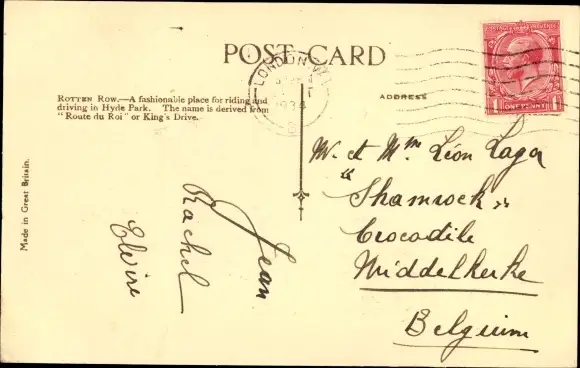 POST CARD
ROTTEN ROW.—A fashionable place for riding and
driving in Hyde Park. The name is derived from
"Route du Roi" or King's Drive.
Made in Great Britain.
LONDON
1934
ADDRESS
POSTAGE
REVENUE
1 ONE PENNY 1
M. et Mᵐ Léon
"Shamrock"
Crocodile
Middelkerke
Belgium
Jean
Rachel
Elvire